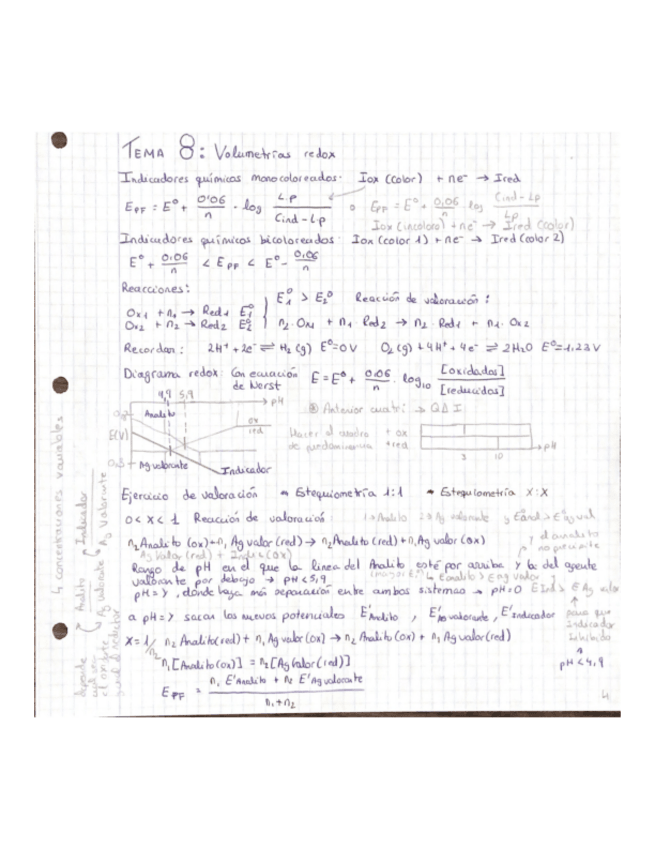 TEMA 8: Volumetrías redox
Indicadores químicos monocoloreados: Iox (color) + ne⁻ → Ired
EPF = E° + 0'06/n · log L.P/(Cind - Lp) o EPF = E° + 0,06/n · log (Cind - Lp)/Lp
Iox (incoloro) + ne⁻ → Ired (color)
Indicadores químicos bicoloreados: Iox (color 1) + ne⁻ → Ired (color 2)
E° + 0,06/n < EPF < E° - 0,06/n
Reacciones:
E₁° > E₂° Reacción de valoración:
Ox₁ + n₁ → Red₁ E₁°
Ox₂ + n₂ → Red₂ E₂°
n₂·Ox₁ + n₁·Red₂ → n₂·Red₁ + n₁·Ox₂
Recordar: 2H⁺ + 2e⁻ ⇌ H₂(g) E°=0V O₂(g) + 4H⁺ + 4e⁻ ⇌ 2H₂O E°=1,23V
Diagrama redox: Con ecuación de Nerst E = E° + 0,06/n · log₁₀ [oxidados]/[reducidos]
4,9 5,9 pH
Analito
ox
red
E(V)
Ag valorante
Indicador
Anterior cuatri → QAI
Hacer el cuadro + ox
de predominancia + red
pH
3 10
Ejercicio de valoración Estequiometría 1:1 Estequiometría X:X
0 < X < 1 Reacción de valoración: 1→Analito 2→Ag valorante
n₂Analito (ox) + n₁ Ag valor (red) → n₂Analito (red) + n₁Ag valor (ox)
y el analito no permite
Rango de pH en el que la línea del Analito esté por arriba y la del agente
valorante por debajo → pH < 5,9
pH = y, donde haya más separación entre ambos sistemas → pH=0
a pH = y sacar los nuevos potenciales E'Analito, E'Ag valorante, E'Indicador
para que Indicador
pH < 4,9
X = 1/ n₂ Analito(red) + n₁ Ag valor (ox) → n₂ Analito (ox) + n₁ Ag valor (red)
n₁[Analito(ox)] = n₂[Ag valor(red)]
EPF = (n₁ E'Analito + n₂ E'Ag valorante)/(n₁+n₂)
4
4 concentraciones variables
Analito Indicador
Ag valorante Ag valorante